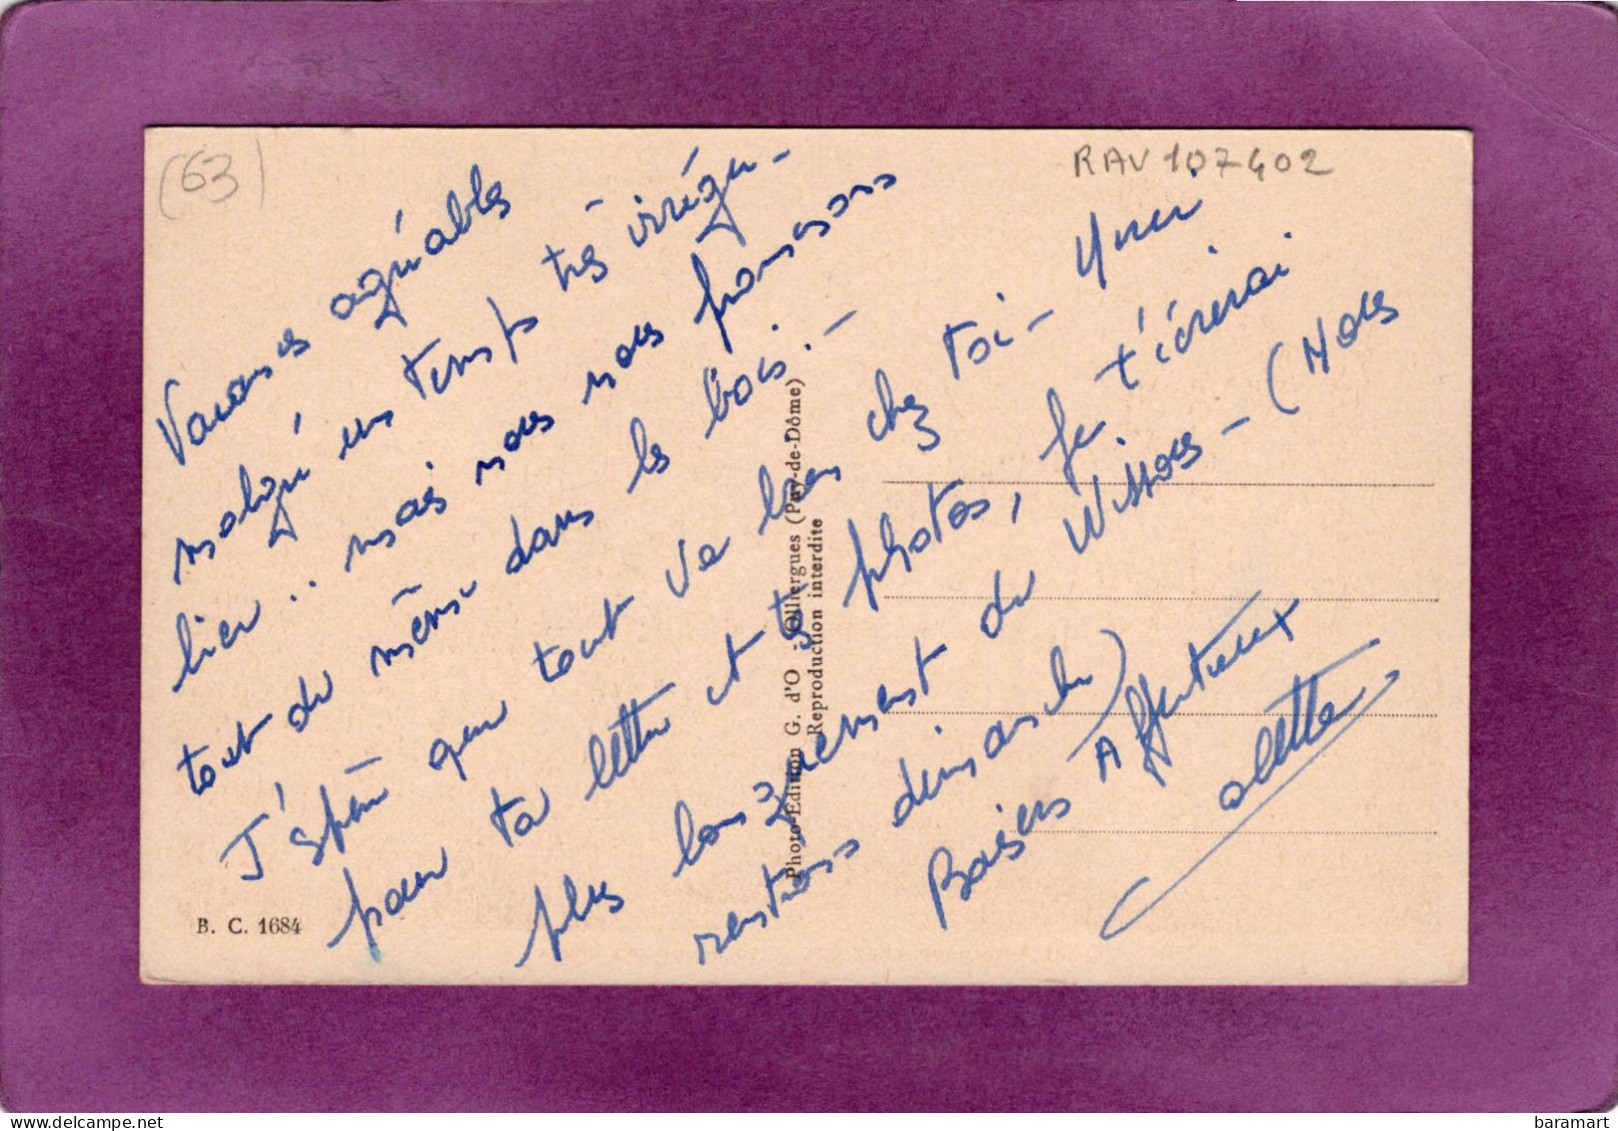 (63)
RAV 107402
Vacances agréables
malgré un temps très irrégu-
lier.. mais nous nous promenons
tout de même dans les bois. -
J'espère que tout va bien chez toi - Merci
pour ta lettre et tes photos, je t'écrirai
plus longuement de Wissous - (Nous
rentrons dimanche)
Baisers Affectueux
Colette
B. C. 1684
Photo-Edition G. d'O - Olliergues (Puy-de-Dôme)
Reproduction interdite
baramart